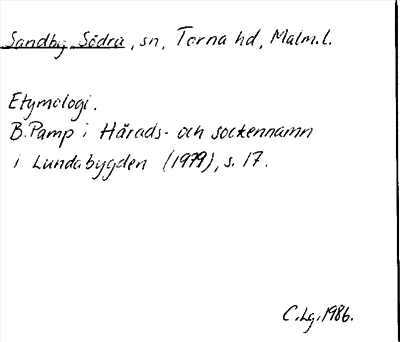 Sandby, Södra, sn, Torna hd, Malm.l.
Etymologi.
B. Pamp i Härads- och sockennamn
i Lundabygden (1979), s. 17.
C.Lg.1986.